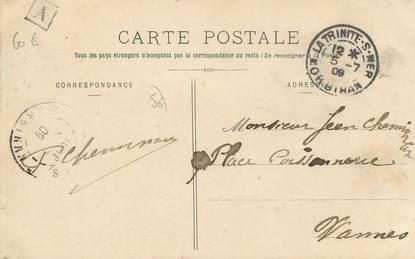 A
60 €
CARTE POSTALE
Tous les pays étrangers n'acceptent pas la correspondance au recto (Se renseigner à la Poste)
CORRESPONDANCE
ADRESSE
LA TRINITÉ-S-MER
12 *
5 -7
09
MORBIHAN
56
09
Monsieur Jean
Place Poissonnerie
Vannes